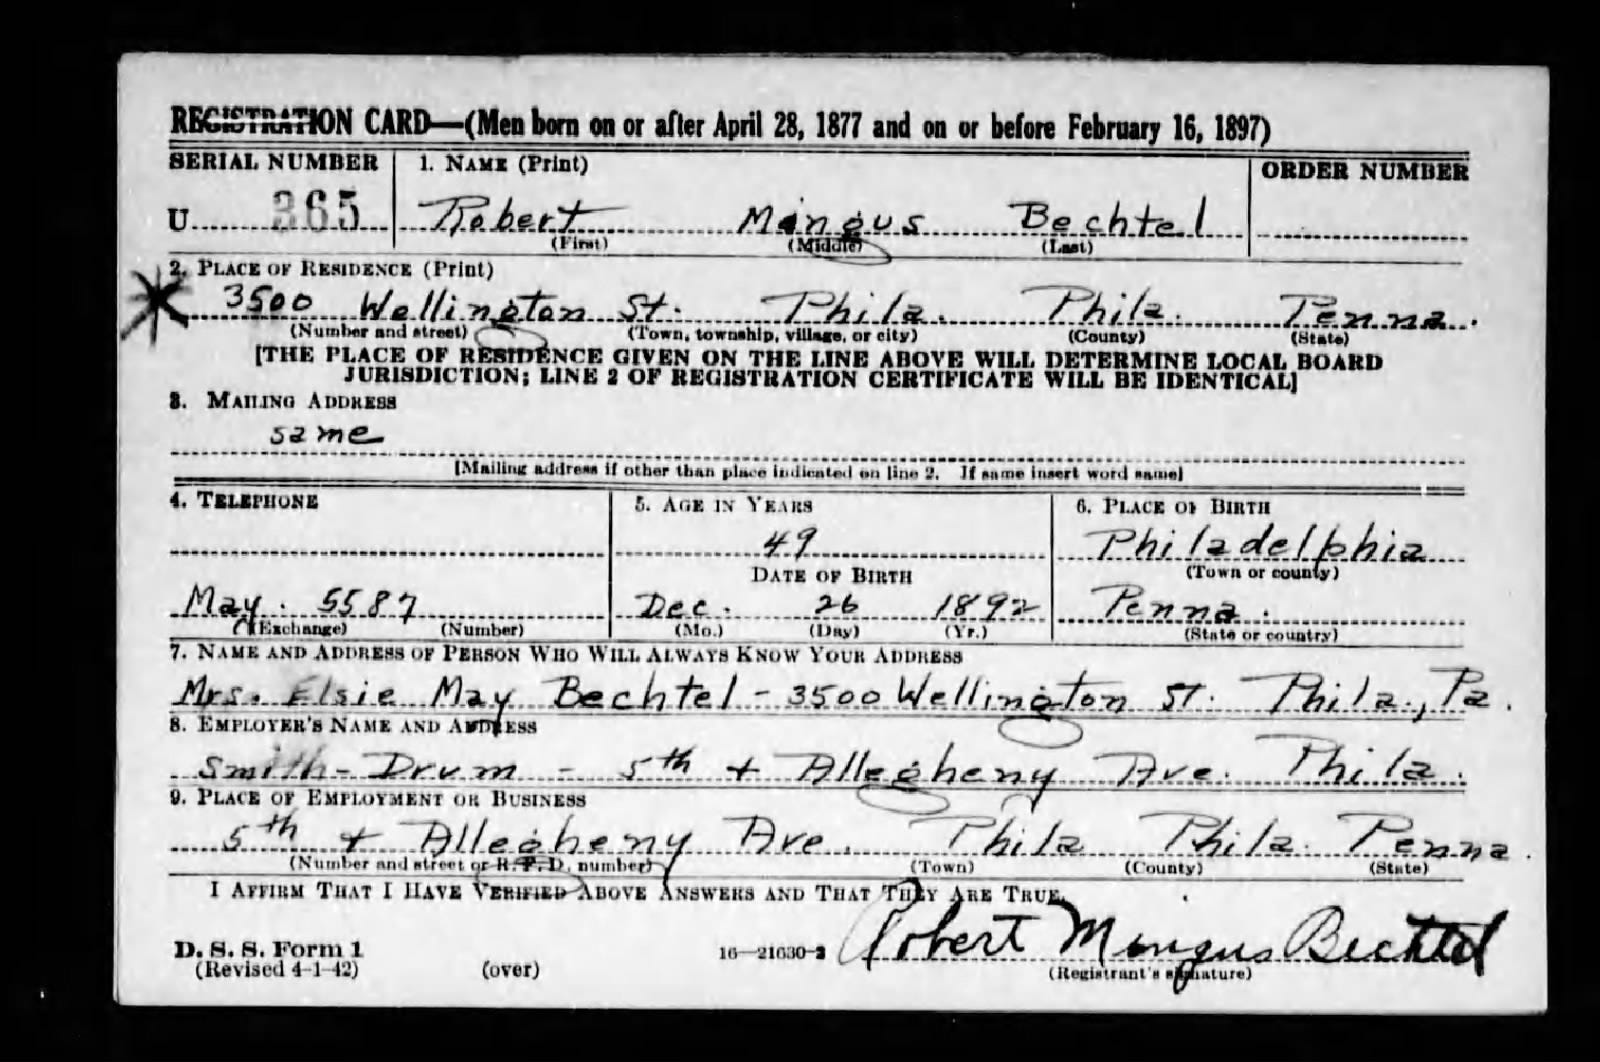 REGISTRATION CARD—(Men born on or after April 28, 1877 and on or before February 16, 1897)
SERIAL NUMBER 1. NAME (Print) ORDER NUMBER
U 365 Robert Mingus Bechtel
(First) (Middle) (Last)
2. PLACE OF RESIDENCE (Print)
3500 Wellington St. Phila. Phila. Penna.
(Number and street) (Town, township, village, or city) (County) (State)
[THE PLACE OF RESIDENCE GIVEN ON THE LINE ABOVE WILL DETERMINE LOCAL BOARD
JURISDICTION; LINE 2 OF REGISTRATION CERTIFICATE WILL BE IDENTICAL]
3. MAILING ADDRESS
same
[Mailing address if other than place indicated on line 2. If same insert word same]
4. TELEPHONE 5. AGE IN YEARS 6. PLACE OF BIRTH
49 Philadelphia
DATE OF BIRTH (Town or county)
May. 5587 Dec. 26 1892 Penna.
(Exchange) (Number) (Mo.) (Day) (Yr.) (State or country)
7. NAME AND ADDRESS OF PERSON WHO WILL ALWAYS KNOW YOUR ADDRESS
Mrs. Elsie May Bechtel - 3500 Wellington St. Phila., Pa.
8. EMPLOYER'S NAME AND ADDRESS
Smith-Drum - 5th + Allegheny Ave. Phila.
9. PLACE OF EMPLOYMENT OR BUSINESS
5th + Allegheny Ave. Phila Phila. Penna.
(Number and street or R. F. D. number) (Town) (County) (State)
I AFFIRM THAT I HAVE VERIFIED ABOVE ANSWERS AND THAT THEY ARE TRUE.
D. S. S. Form 1 16—21630-2 Robert Mingus Bechtel
(Revised 4-1-42) (over) (Registrant's signature)